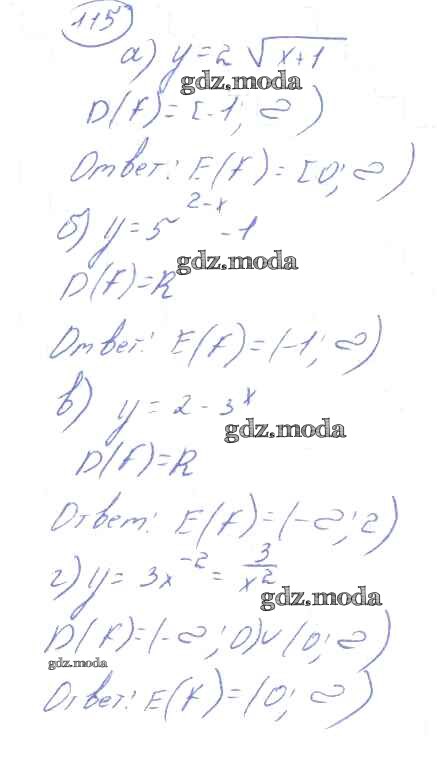 115
а) y = 2 √x+1
gdz.moda
D(f) = [-1; ∞)
Ответ: E(f) = [0; ∞)
б) y = 5^{2-x} - 1
gdz.moda
D(f) = R
Ответ: E(f) = (-1; ∞)
в) y = 2 - 3^x
gdz.moda
D(f) = R
Ответ: E(f) = (-∞; 2)
г) y = 3x^{-2} = 3/x^2
gdz.moda
D(f) = (-∞; 0) ∪ (0; ∞)
gdz.moda
Ответ: E(f) = (0; ∞)